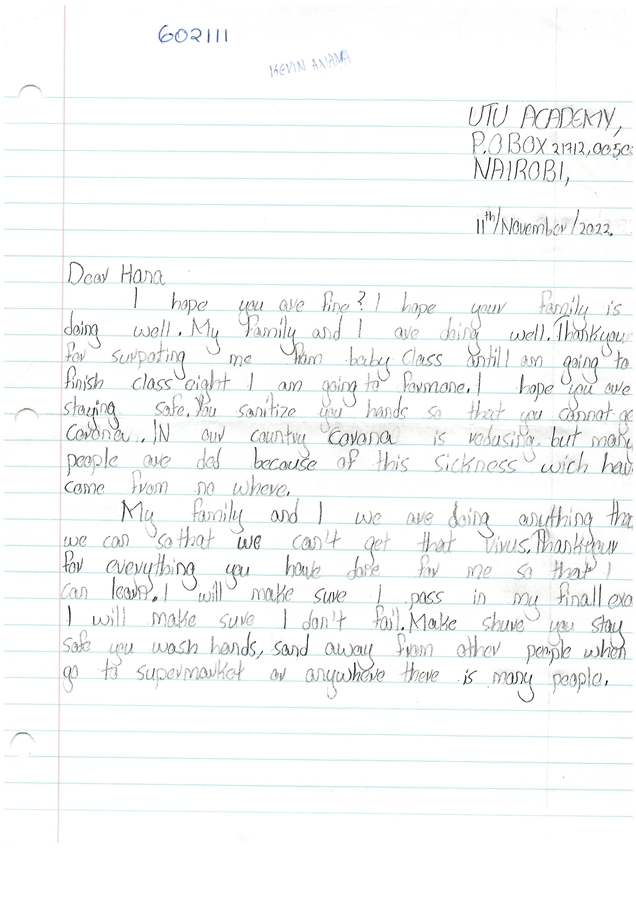 602111
KEVIN ANAMA
UTU ACADEMY,
P.O BOX 21712,0050
NAIROBI,
11th/November/2022.
Dear Hana
I hope you are fine? I hope your family is
doing well. My Family and I are doing well. Thankyou
for surpoting me fam baby class antill am going to
finish class eight I am going to farmone. I hope you are
staying safe. You sanitize you hands so that you cannot ge
Corona. IN our country Corona is redusing but many
people are dad because of this sickness wich hav
come from no where.
My family and I we are doing anything tha
we can so that we can't get that virus. Thankyour
for everything you have done for me so that I
can learn. I will make sure I pass in my finall exa
I will make sure I don't fail. Make shure you stay
safe you wash hands, sand away from other people when
go to supermarket or anywhere there is many people.